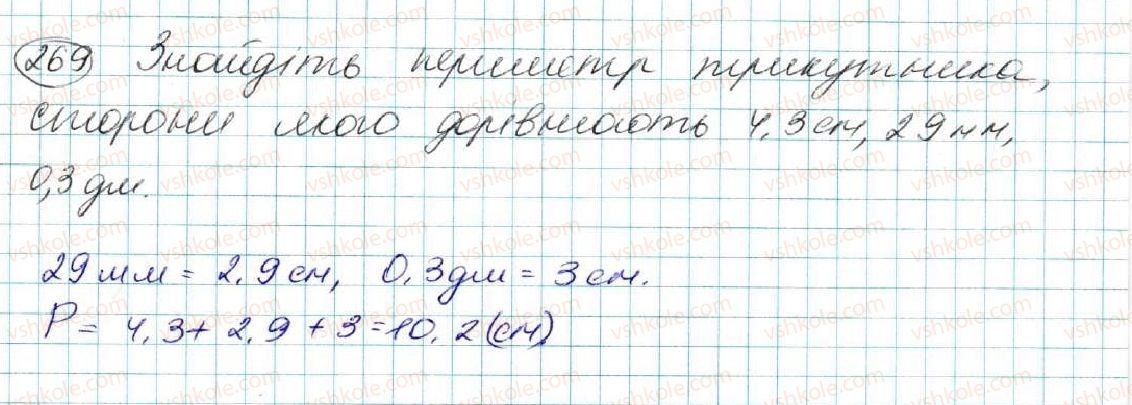 269 Знайдіть периметр трикутника,
сторони якого дорівнюють 4,3 см, 29 мм,
0,3 дм.
29 мм = 2,9 см, 0,3 дм = 3 см.
P = 4,3 + 2,9 + 3 = 10,2 (см)
vshkole.com